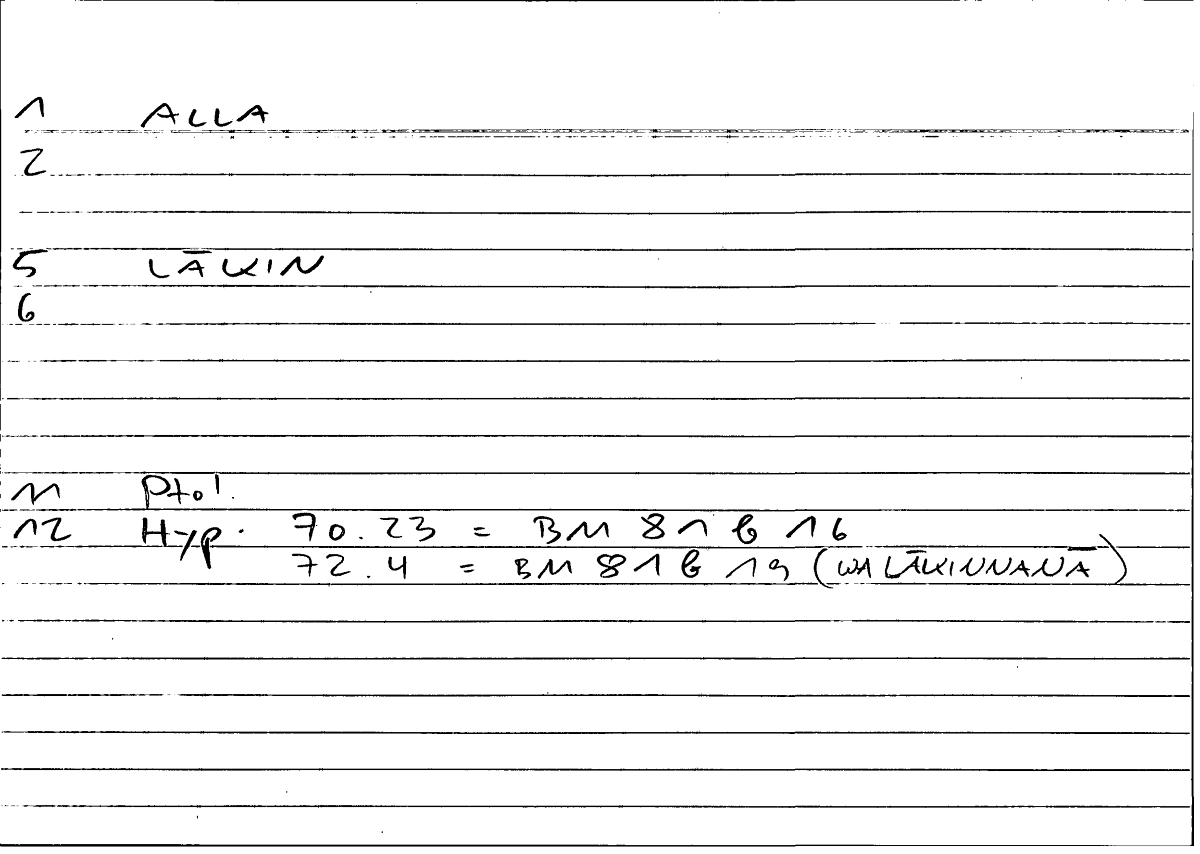 1 ALLA
2
5 LĀKIN
6
11 Ptol.
12 Hyp. 70.23 = BM 81 b 16
72.4 = BM 81 b 19 (WA LĀKINNANĀ)